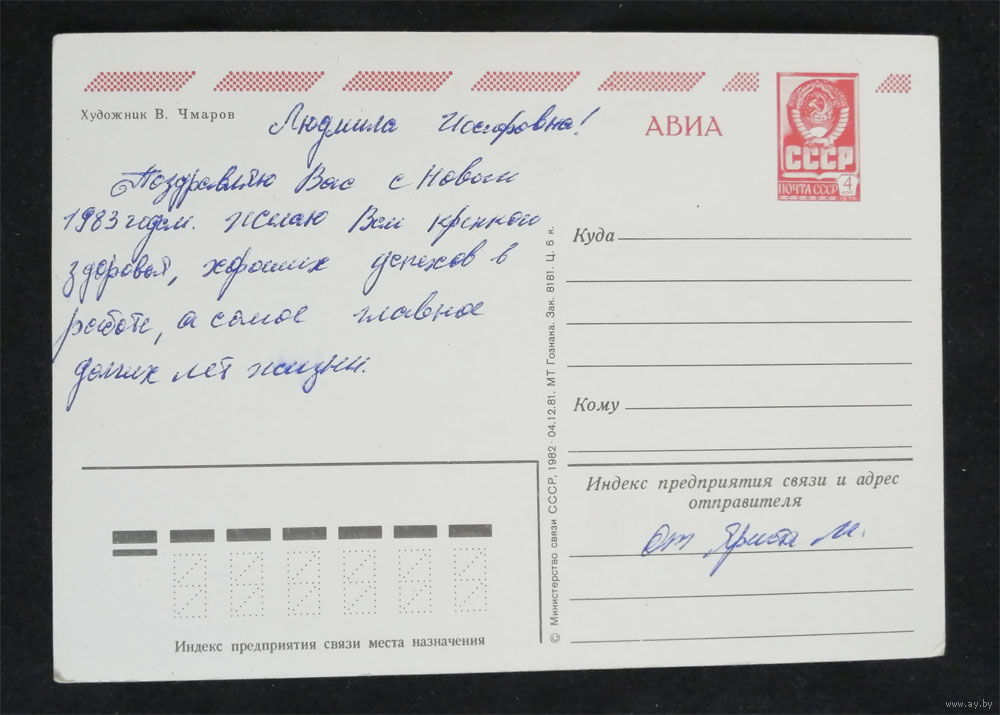 Художник В. Чмаров
Людмила Иосифовна!
АВИА
СССР
ПОЧТА СССР 4 КОП
1976
Поздравляю Вас с Новым
1983 годом. Желаю Вам крепкого
здоровья, хороших успехов в
работе, а самое главное
долгих лет жизни.
Куда
Кому
Индекс предприятия связи и адрес
отправителя
От М.
Индекс предприятия связи места назначения
© Министерство связи СССР, 1982 · 04.12.81. МТ Гознака. Зак. 8181. Ц. 6 к.
www.ay.by